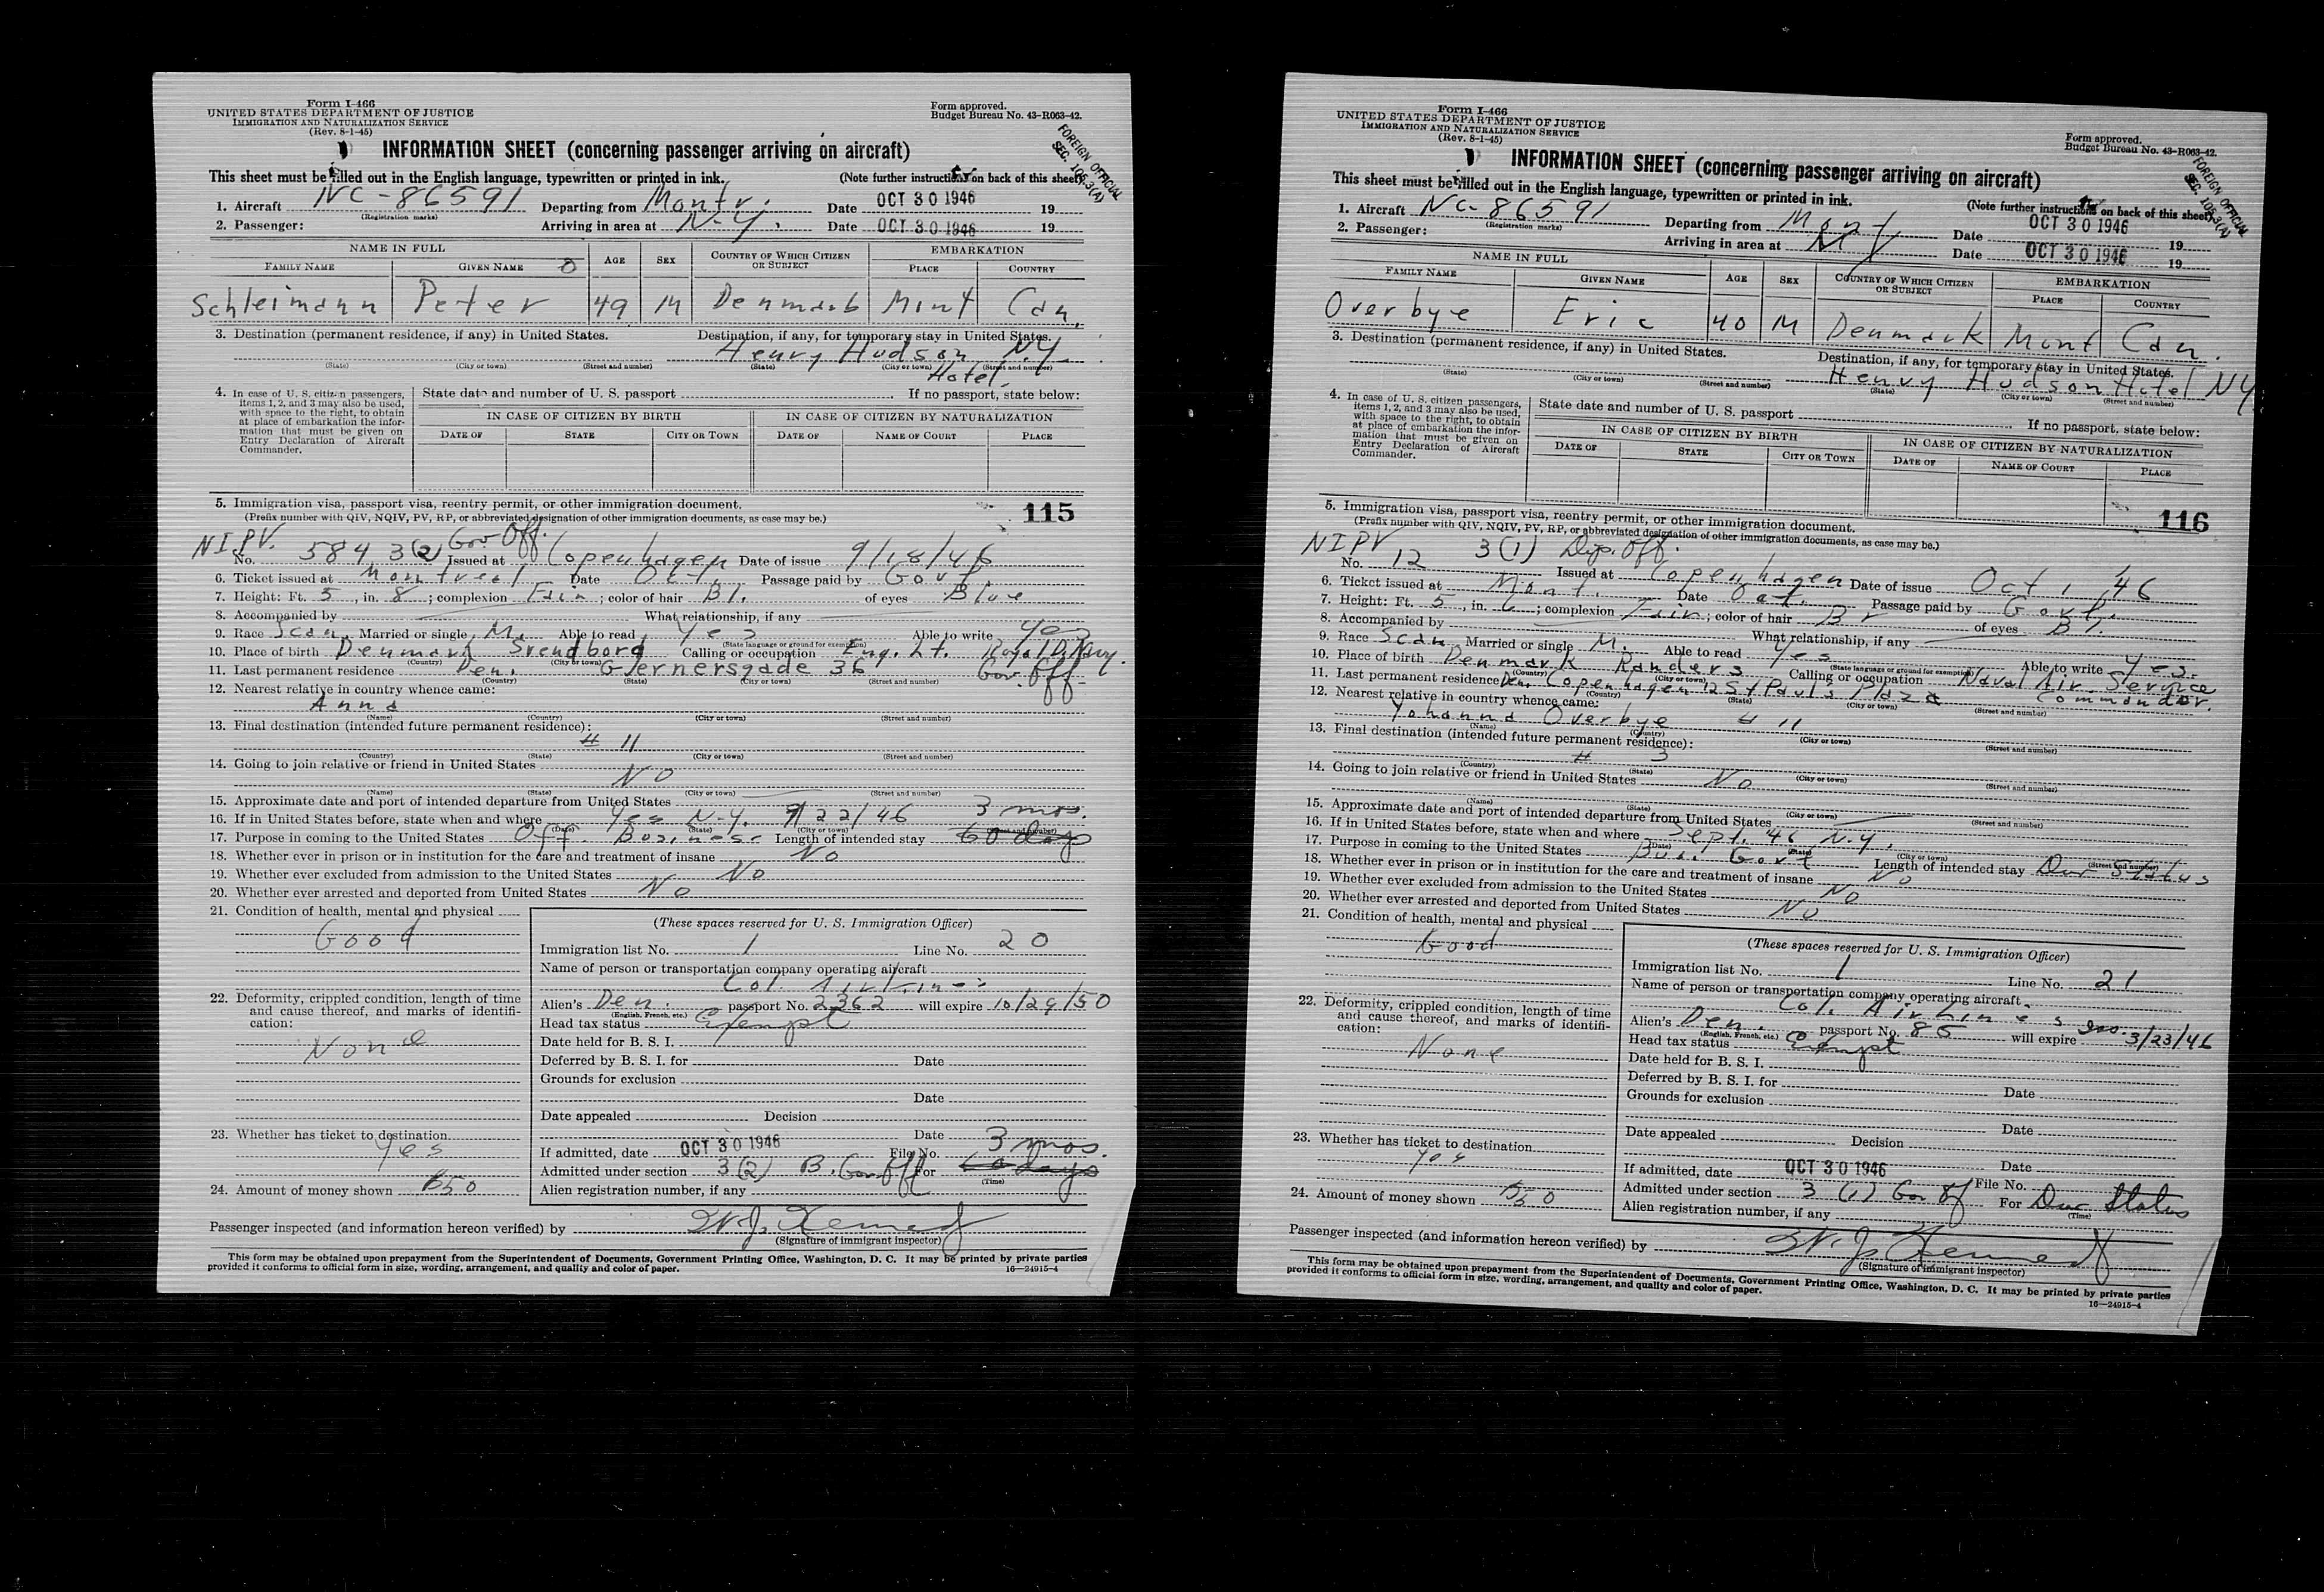 Form I-466
UNITED STATES DEPARTMENT OF JUSTICE
IMMIGRATION AND NATURALIZATION SERVICE
(Rev. 8-1-45)
Form approved.
Budget Bureau No. 43-R063-42.
FOREIGN OFFICIAL
SEC. 105.3(A)
INFORMATION SHEET (concerning passenger arriving on aircraft)
This sheet must be filled out in the English language, typewritten or printed in ink. (Note further instructions on back of this sheet)
1. Aircraft NC-86591 Departing from Montr. Date OCT 30 1946 19
(Registration marks)
2. Passenger: Arriving in area at N.Y. Date OCT 30 1946 19
NAME IN FULL AGE SEX COUNTRY OF WHICH CITIZEN OR SUBJECT EMBARKATION
FAMILY NAME GIVEN NAME PLACE COUNTRY
Schleimann Peter 49 M Denmark Mont Can.
3. Destination (permanent residence, if any) in United States. Destination, if any, for temporary stay in United States.
Henry Hudson N.Y.
(State) (City or town) (Street and number) (State) (City or town) (Street and number)
Hotel.
4. In case of U. S. citizen passengers, items 1, 2, and 3 may also be used, with space to the right, to obtain at place of embarkation the information that must be given on Entry Declaration of Aircraft Commander.
State date and number of U. S. passport If no passport, state below:
IN CASE OF CITIZEN BY BIRTH IN CASE OF CITIZEN BY NATURALIZATION
DATE OF STATE CITY OR TOWN DATE OF NAME OF COURT PLACE
5. Immigration visa, passport visa, reentry permit, or other immigration document. 115
(Prefix number with QIV, NQIV, PV, RP, or abbreviated designation of other immigration documents, as case may be.)
NIPV. Gov. Off.
No. 584 3(2) Issued at Copenhagen Date of issue 9/18/46
6. Ticket issued at Montreal Date Oct. Passage paid by Govt.
7. Height: Ft. 5, in. 8; complexion Fair; color of hair Bl. of eyes Blue
8. Accompanied by What relationship, if any
9. Race Scan. Married or single M. Able to read Yes Able to write Yes
(State language or ground for exemption)
10. Place of birth Denmark Svendborg Calling or occupation Eng. Lt. Royal D. Navy.
(Country) (City or town)
11. Last permanent residence Den. Gernersgade 36 Gov. Off.
(Country) (State) (City or town) (Street and number)
12. Nearest relative in country whence came:
Anna
(Name) (Country) (City or town) (Street and number)
13. Final destination (intended future permanent residence):
# 11
(Country) (State) (City or town) (Street and number)
14. Going to join relative or friend in United States
No
(Name) (State) (City or town) (Street and number)
15. Approximate date and port of intended departure from United States
16. If in United States before, state when and where Yes N.Y. 9/22/46 3 mos.
(Date) (State) (City or town) (Street and number)
17. Purpose in coming to the United States Off. Business Length of intended stay 60 days
18. Whether ever in prison or in institution for the care and treatment of insane No
19. Whether ever excluded from admission to the United States No
20. Whether ever arrested and deported from United States No
21. Condition of health, mental and physical
Good
22. Deformity, crippled condition, length of time and cause thereof, and marks of identification:
None
23. Whether has ticket to destination
Yes
24. Amount of money shown $50
(These spaces reserved for U. S. Immigration Officer)
Immigration list No. 1 Line No. 20
Name of person or transportation company operating aircraft
Col. Airlines
Alien's Den. passport No. 2362 will expire 10/29/50
(English, French, etc.)
Head tax status Exempt
Date held for B. S. I.
Deferred by B. S. I. for Date
Grounds for exclusion
Date
Date appealed Decision
Date 3 mos.
If admitted, date OCT 30 1946 File No.
Admitted under section 3(2) B. Gov Off For 60 days
(Time)
Alien registration number, if any
Passenger inspected (and information hereon verified) by
(Signature of immigrant inspector)
This form may be obtained upon prepayment from the Superintendent of Documents, Government Printing Office, Washington, D. C. It may be printed by private parties
provided it conforms to official form in size, wording, arrangement, and quality and color of paper. 16—24915-4
Form I-466
UNITED STATES DEPARTMENT OF JUSTICE
IMMIGRATION AND NATURALIZATION SERVICE
(Rev. 8-1-45)
Form approved.
Budget Bureau No. 43-R063-42.
FOREIGN OFFICIAL
SEC. 105.3(A)
INFORMATION SHEET (concerning passenger arriving on aircraft)
This sheet must be filled out in the English language, typewritten or printed in ink. (Note further instructions on back of this sheet)
1. Aircraft NC-86591 Departing from Mont Date OCT 30 1946 19
(Registration marks)
2. Passenger: Arriving in area at N Y Date OCT 30 1946 19
NAME IN FULL AGE SEX COUNTRY OF WHICH CITIZEN OR SUBJECT EMBARKATION
FAMILY NAME GIVEN NAME PLACE COUNTRY
Overbye Eric 40 M Denmark Mont Can.
3. Destination (permanent residence, if any) in United States. Destination, if any, for temporary stay in United States.
Henry Hudson Hotel NY.
(State) (City or town) (Street and number) (State) (City or town) (Street and number)
4. In case of U. S. citizen passengers, items 1, 2, and 3 may also be used, with space to the right, to obtain at place of embarkation the information that must be given on Entry Declaration of Aircraft Commander.
State date and number of U. S. passport If no passport, state below:
IN CASE OF CITIZEN BY BIRTH IN CASE OF CITIZEN BY NATURALIZATION
DATE OF STATE CITY OR TOWN DATE OF NAME OF COURT PLACE
5. Immigration visa, passport visa, reentry permit, or other immigration document. 116
(Prefix number with QIV, NQIV, PV, RP, or abbreviated designation of other immigration documents, as case may be.)
NIPV 3(1) Dip. Off.
No. 12 Issued at Copenhagen Date of issue Oct 1, 46
6. Ticket issued at Mont. Date Oct. Passage paid by Govt.
7. Height: Ft. 5, in. 6; complexion Fair; color of hair Br of eyes Bl.
8. Accompanied by What relationship, if any
9. Race Scan. Married or single M. Able to read Yes Able to write Yes.
(State language or ground for exemption)
10. Place of birth Denmark Randers Calling or occupation Naval Air. Service
(Country) (City or town)
11. Last permanent residence Den. Copenhagen 12 St Paul's Plaza Commander.
(Country) (State) (City or town) (Street and number)
12. Nearest relative in country whence came:
Yohanna Overbye # 11
(Name) (Country) (City or town) (Street and number)
13. Final destination (intended future permanent residence):
# 3
(Country) (State) (City or town) (Street and number)
14. Going to join relative or friend in United States No
(Name) (State) (City or town) (Street and number)
15. Approximate date and port of intended departure from United States
16. If in United States before, state when and where Sept. 46 N.Y.
(Date) (State) (City or town) (Street and number)
17. Purpose in coming to the United States Bus. Govt Length of intended stay Dur Status
18. Whether ever in prison or in institution for the care and treatment of insane No
19. Whether ever excluded from admission to the United States No
20. Whether ever arrested and deported from United States No
21. Condition of health, mental and physical
Good
22. Deformity, crippled condition, length of time and cause thereof, and marks of identification:
None
23. Whether has ticket to destination
Yes
24. Amount of money shown $50
(These spaces reserved for U. S. Immigration Officer)
Immigration list No. 1 Line No. 21
Name of person or transportation company operating aircraft
Col. Airlines
Alien's Den. passport No. 85 will expire 3/23/46
(English, French, etc.)
Head tax status Exempt
Date held for B. S. I.
Deferred by B. S. I. for Date
Grounds for exclusion
Date
Date appealed Decision
Date
If admitted, date OCT 30 1946 File No.
Admitted under section 3 (1) Gov Off For Dur Status
(Time)
Alien registration number, if any
Passenger inspected (and information hereon verified) by
(Signature of immigrant inspector)
This form may be obtained upon prepayment from the Superintendent of Documents, Government Printing Office, Washington, D. C. It may be printed by private parties
provided it conforms to official form in size, wording, arrangement, and quality and color of paper. 16—24915-4